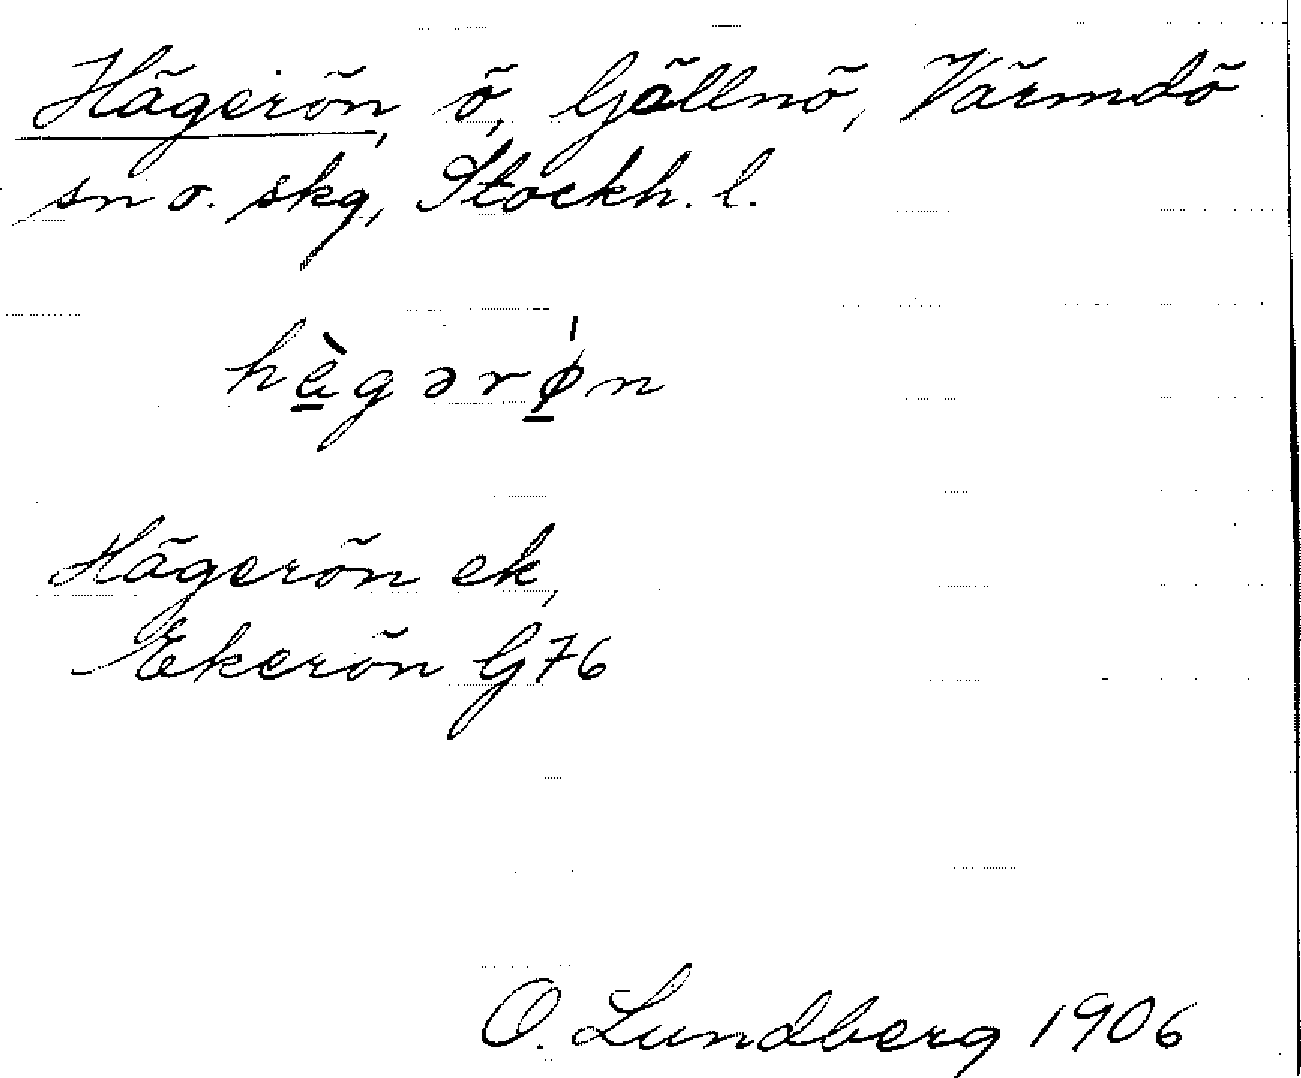 Hägerön, ö, Gällnö, Värmdö
sn o. skg, Stockh. l.
hè̱gərǿ̱n
Hägerön ek,
Ekerön G76
O. Lundberg 1906